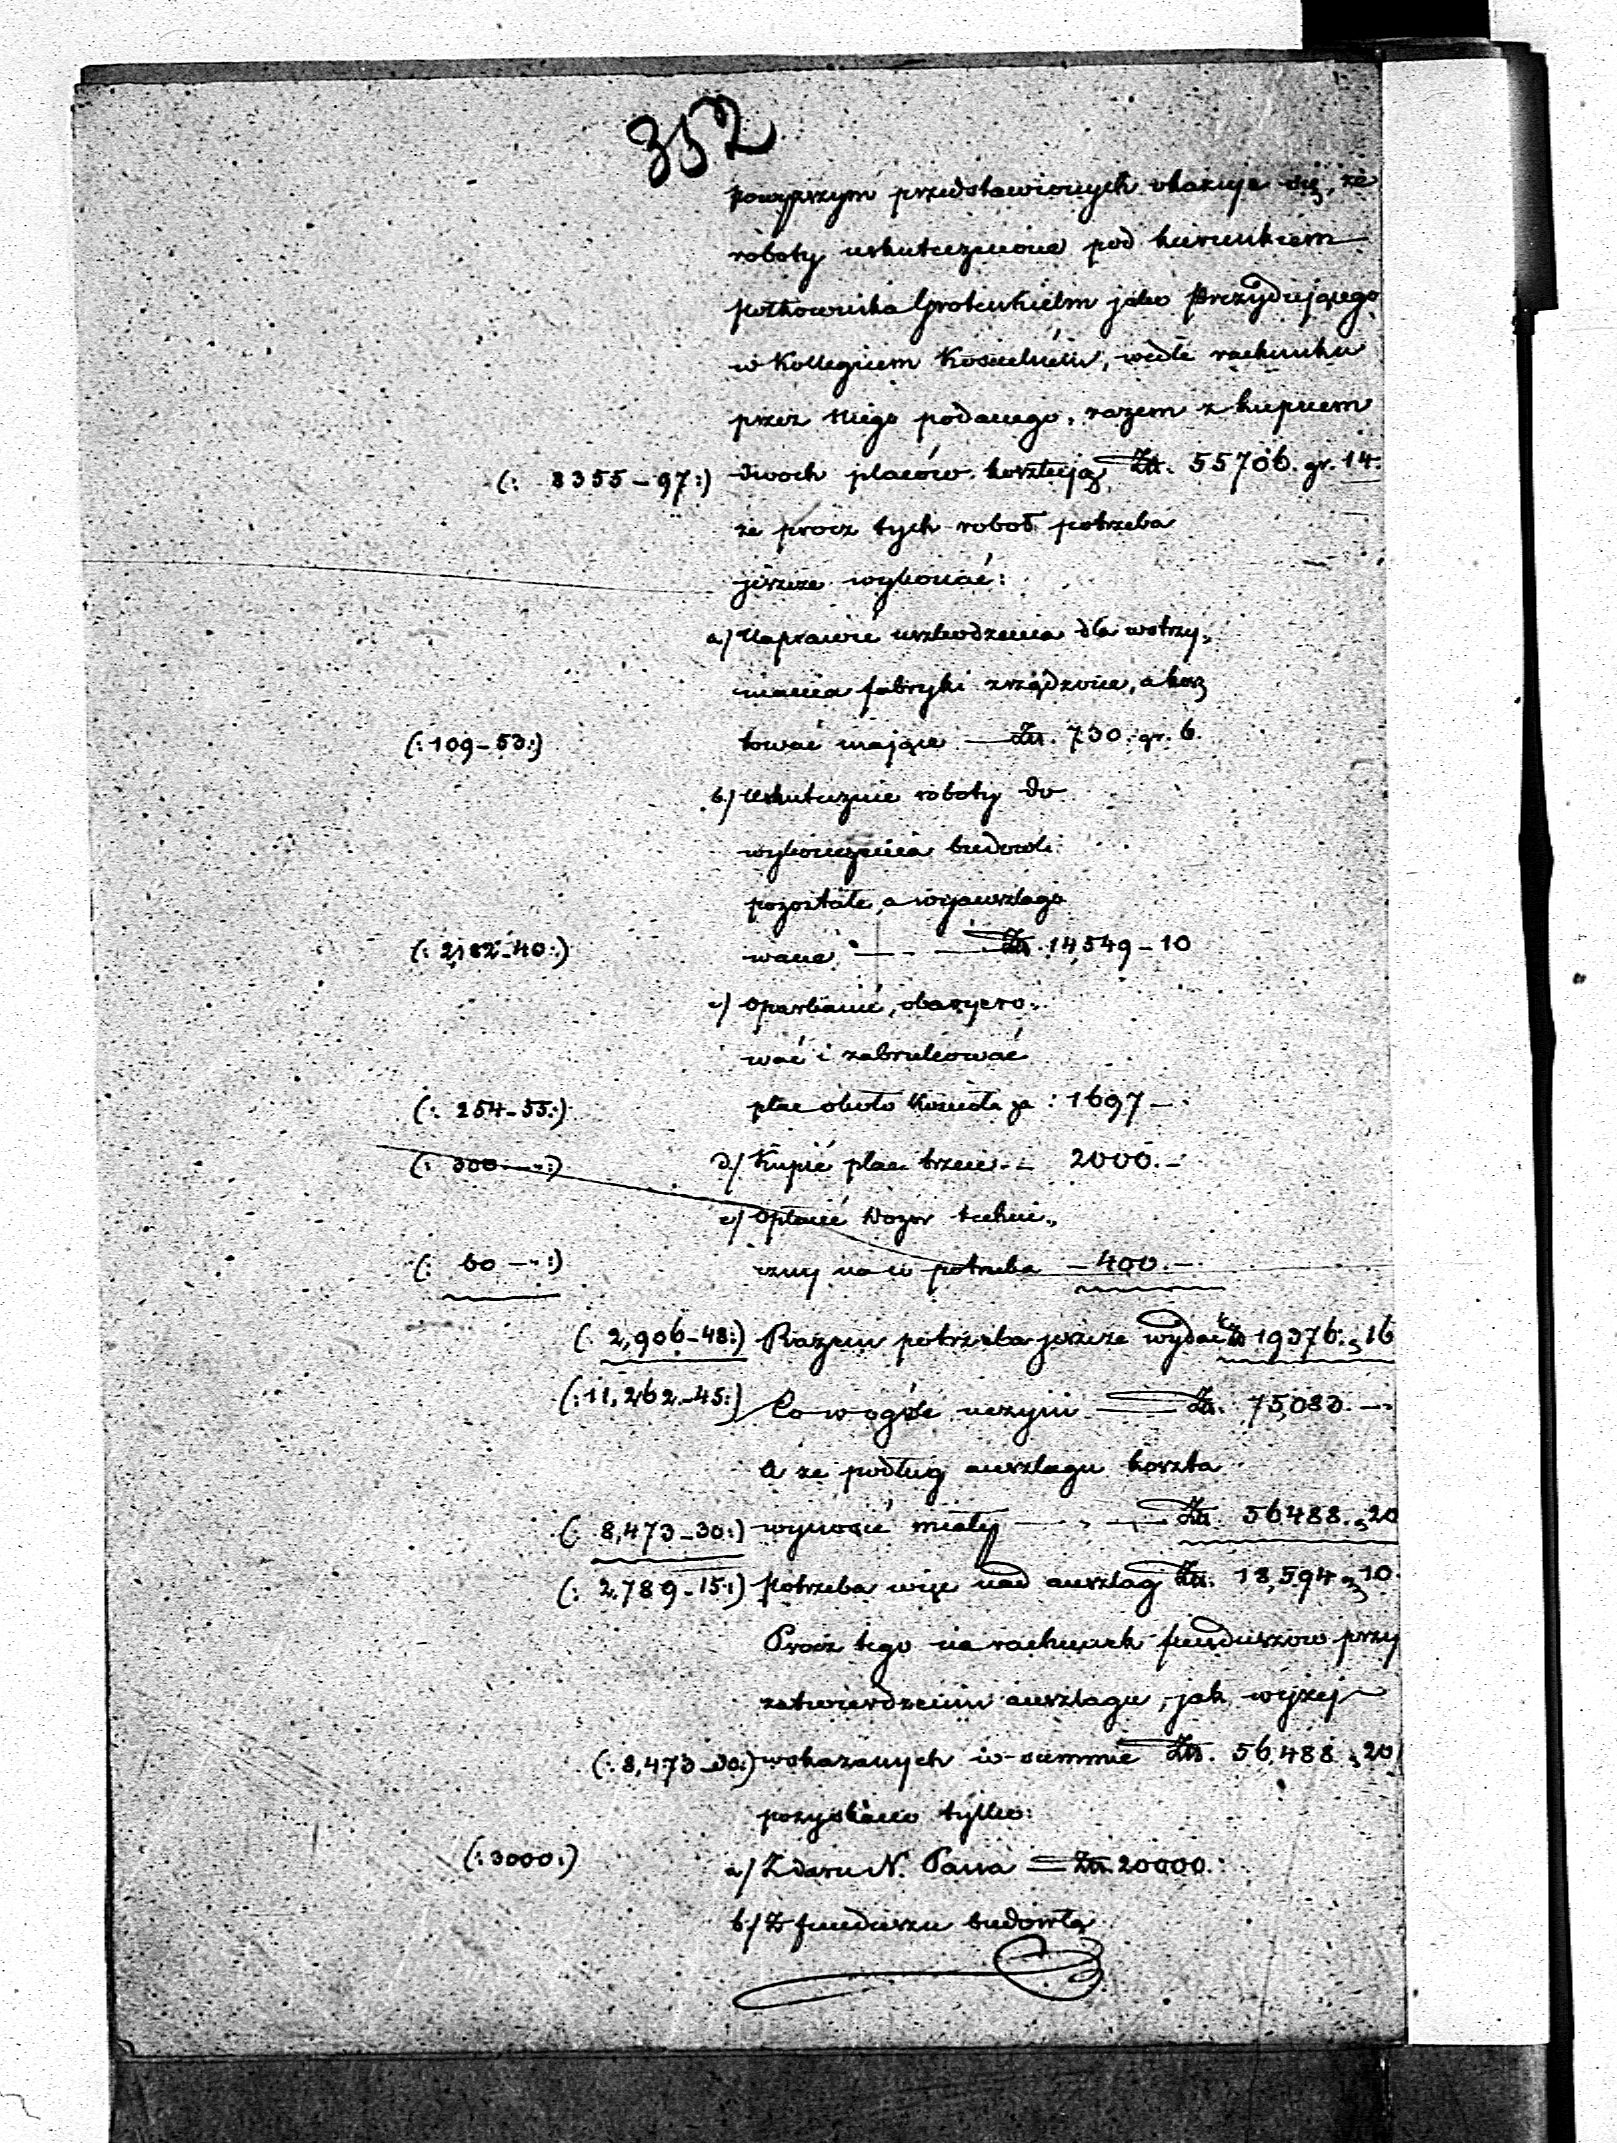 352
powyższym przedstawionych okazuje się, że
roboty uskutecznione pod kierunkiem
półkownika Grotenhielm jako Prezydującego
w Kollegium Kościelném, wedle rachunku
przez niego podanego, razem z kupnem
(: 8355–97:) dwoch placów kosztują Złt. 55706. gr. 14.
że procz tych robot potrzeba
jeszcze wykonać:
a/ Naprawie uszkodzenia dla wstrzy„
mania fabryki zrządzone, a kosz
(: 109–53:) tować mające — Złt. 730. gr. 6.
b/ Uskutecznie roboty do
wykończenia budowli
pozostałe, a wyanszlago
(: 2182–40:) wane — — Złt. 14,549–10
c/ Oparkanić, obaryero„
wać i zabrukować
(: 254–55:) plac około Kościoła za : 1697 –.
(: 300 —:) d/ Kupić plac trzeci – 2000. –
e/ Opłacić Dozor techni„
(: 60 —:) czny na co potrzeba – 400. –
(: 2,906–48:) Razem potrzeba jeszcze wydać Złt 19376. „ 16
(: 11,262–45:) Co w ogóle uczyni — Złt. 75,083. –
A że podług anszlagu koszta
(: 8,473–30:) wynosić miały — „ — Złt. 56488. „ 20
(: 2,789–15:) potrzeba więc nad anszlag Złt. 18,594 „ 10.
Procz tego na rachunek funduszow przy
zatwierdzeniu anszlagu, jak wyżej
(: 8,473–30:) wskazanych w summie Złt. 56,488 „ 20
pozyskano tylko:
(: 3000:) a/ Z daru N. Pana — Złt. 20000.
b/ Z funduszu budowlą